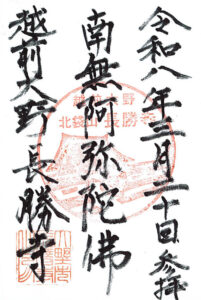 令和八年三月二十日 参拝
南無阿弥陀佛
越前大野 長勝寺
越前大野
北袋山長勝寺